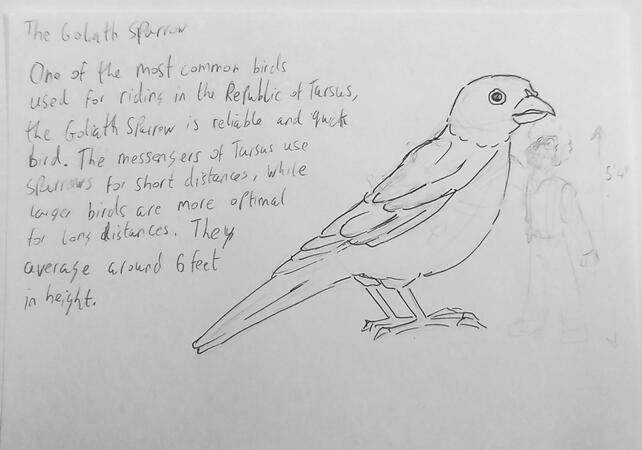 The Goliath Sparrow
One of the most common birds
used for riding in the Republic of Tarsus,
the Goliath Sparrow is reliable and quick
bird. The messengers of Tarsus use
sparrows for short distances, while
larger birds are more optimal
for long distances. They
average around 6 feet
in height.
5'4"